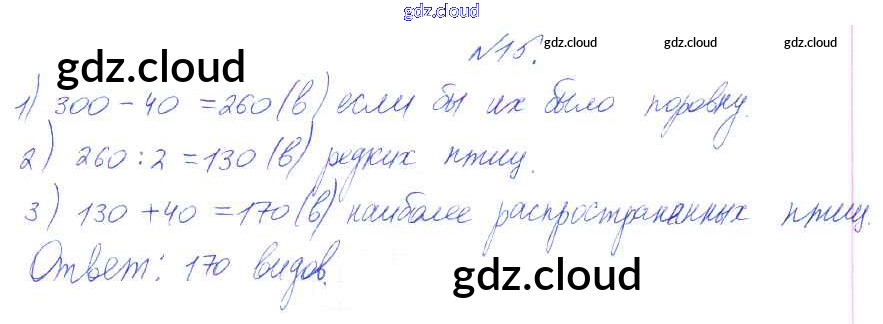 gdz.cloud
№15. gdz.cloud gdz.cloud gdz.cloud
gdz.cloud
1) 300 - 40 = 260 (в) если бы их было поровну.
2) 260 : 2 = 130 (в) редких птиц.
3) 130 + 40 = 170 (в) наиболее распространенных птиц.
Ответ: 170 видов.
gdz.cloud